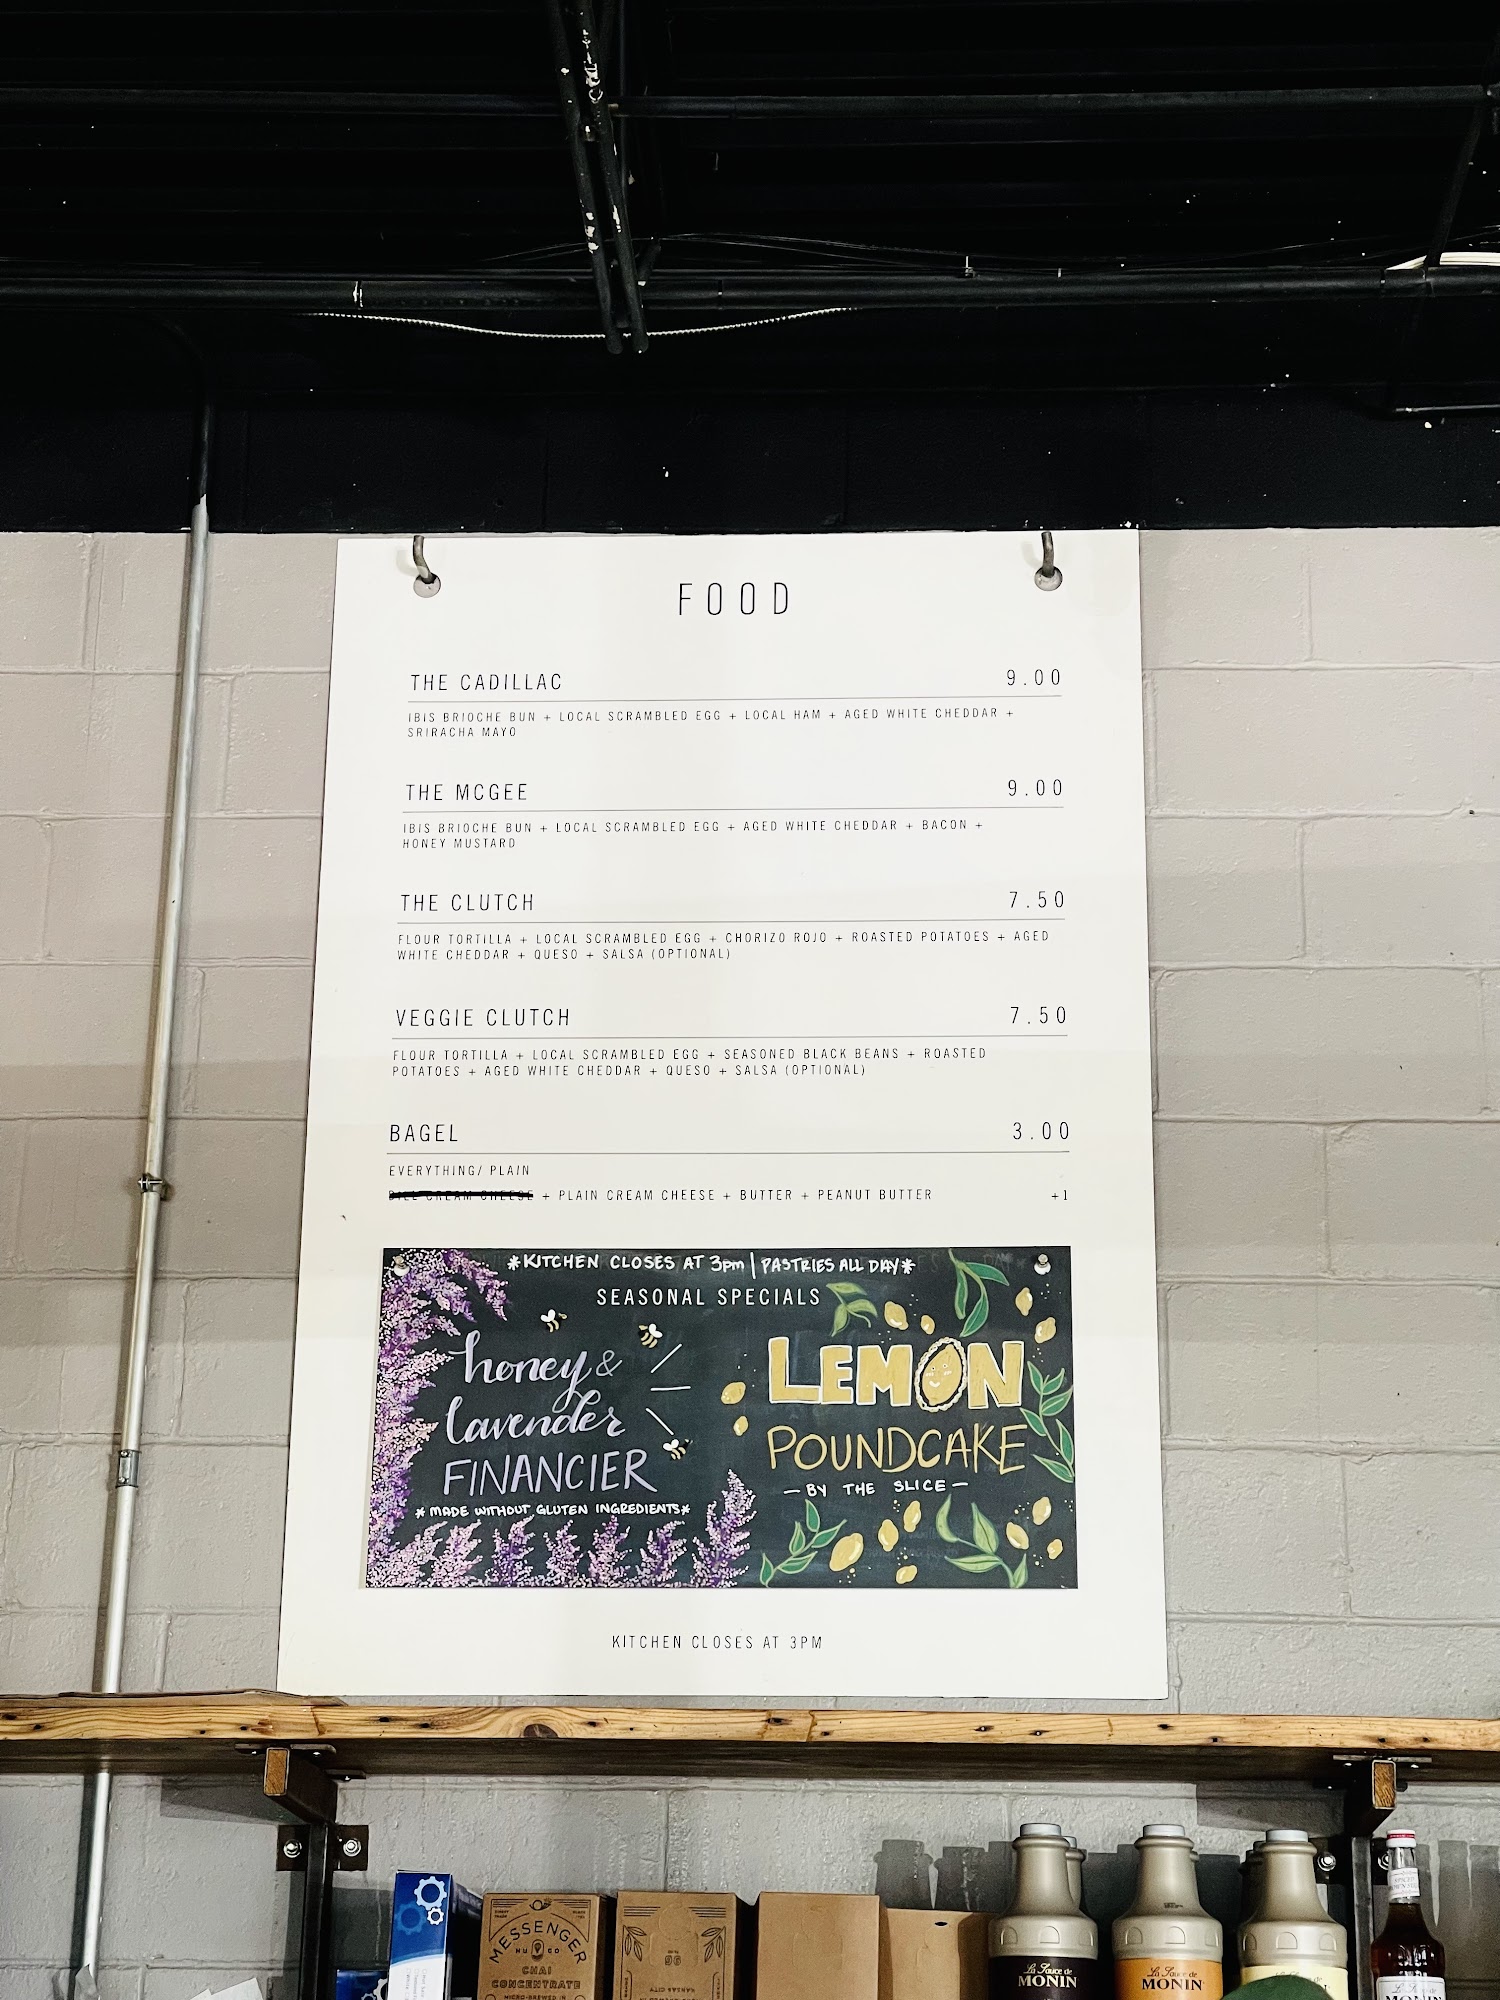 FOOD
THE CADILLAC 9.00
IBIS BRIOCHE BUN + LOCAL SCRAMBLED EGG + LOCAL HAM + AGED WHITE CHEDDAR +
SRIRACHA MAYO
THE MCGEE 9.00
IBIS BRIOCHE BUN + LOCAL SCRAMBLED EGG + AGED WHITE CHEDDAR + BACON +
HONEY MUSTARD
THE CLUTCH 7.50
FLOUR TORTILLA + LOCAL SCRAMBLED EGG + CHORIZO ROJO + ROASTED POTATOES + AGED
WHITE CHEDDAR + QUESO + SALSA (OPTIONAL)
VEGGIE CLUTCH 7.50
FLOUR TORTILLA + LOCAL SCRAMBLED EGG + SEASONED BLACK BEANS + ROASTED
POTATOES + AGED WHITE CHEDDAR + QUESO + SALSA (OPTIONAL)
BAGEL 3.00
EVERYTHING/ PLAIN
DILL CREAM CHEESE + PLAIN CREAM CHEESE + BUTTER + PEANUT BUTTER +1
*KITCHEN CLOSES AT 3pm | PASTRIES ALL DAY*
SEASONAL SPECIALS
honey &
lavender
FINANCIER
*MADE WITHOUT GLUTEN INGREDIENTS*
LEMON
POUNDCAKE
— BY THE SLICE —
KITCHEN CLOSES AT 3PM
MESSENGER
CHAI
CONCENTRATE
MICRO-BREWED IN
La Sauce de
MONIN
La Sauce de
MONIN
La Sauce de
MONIN
MONIN